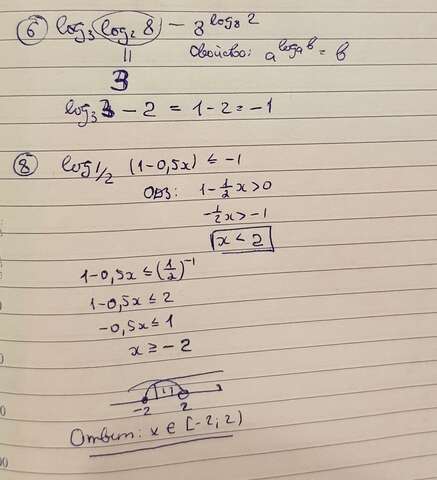 ⑥ log₃ log₂ 8 − 8^(log₈ 2)
Свойство: a^(logₐ b) = b
||
3
log₃ 3 − 2 = 1 − 2 = −1
⑧ log1/2 (1−0,5x) ≤ −1
ОДЗ: 1−½x>0
−½x>−1
x < 2
1−0,5x ≤ (1/2)⁻¹
1−0,5x ≤ 2
−0,5x ≤ 1
x ≥ −2
−2 2
Ответ: x ∈ [−2; 2)